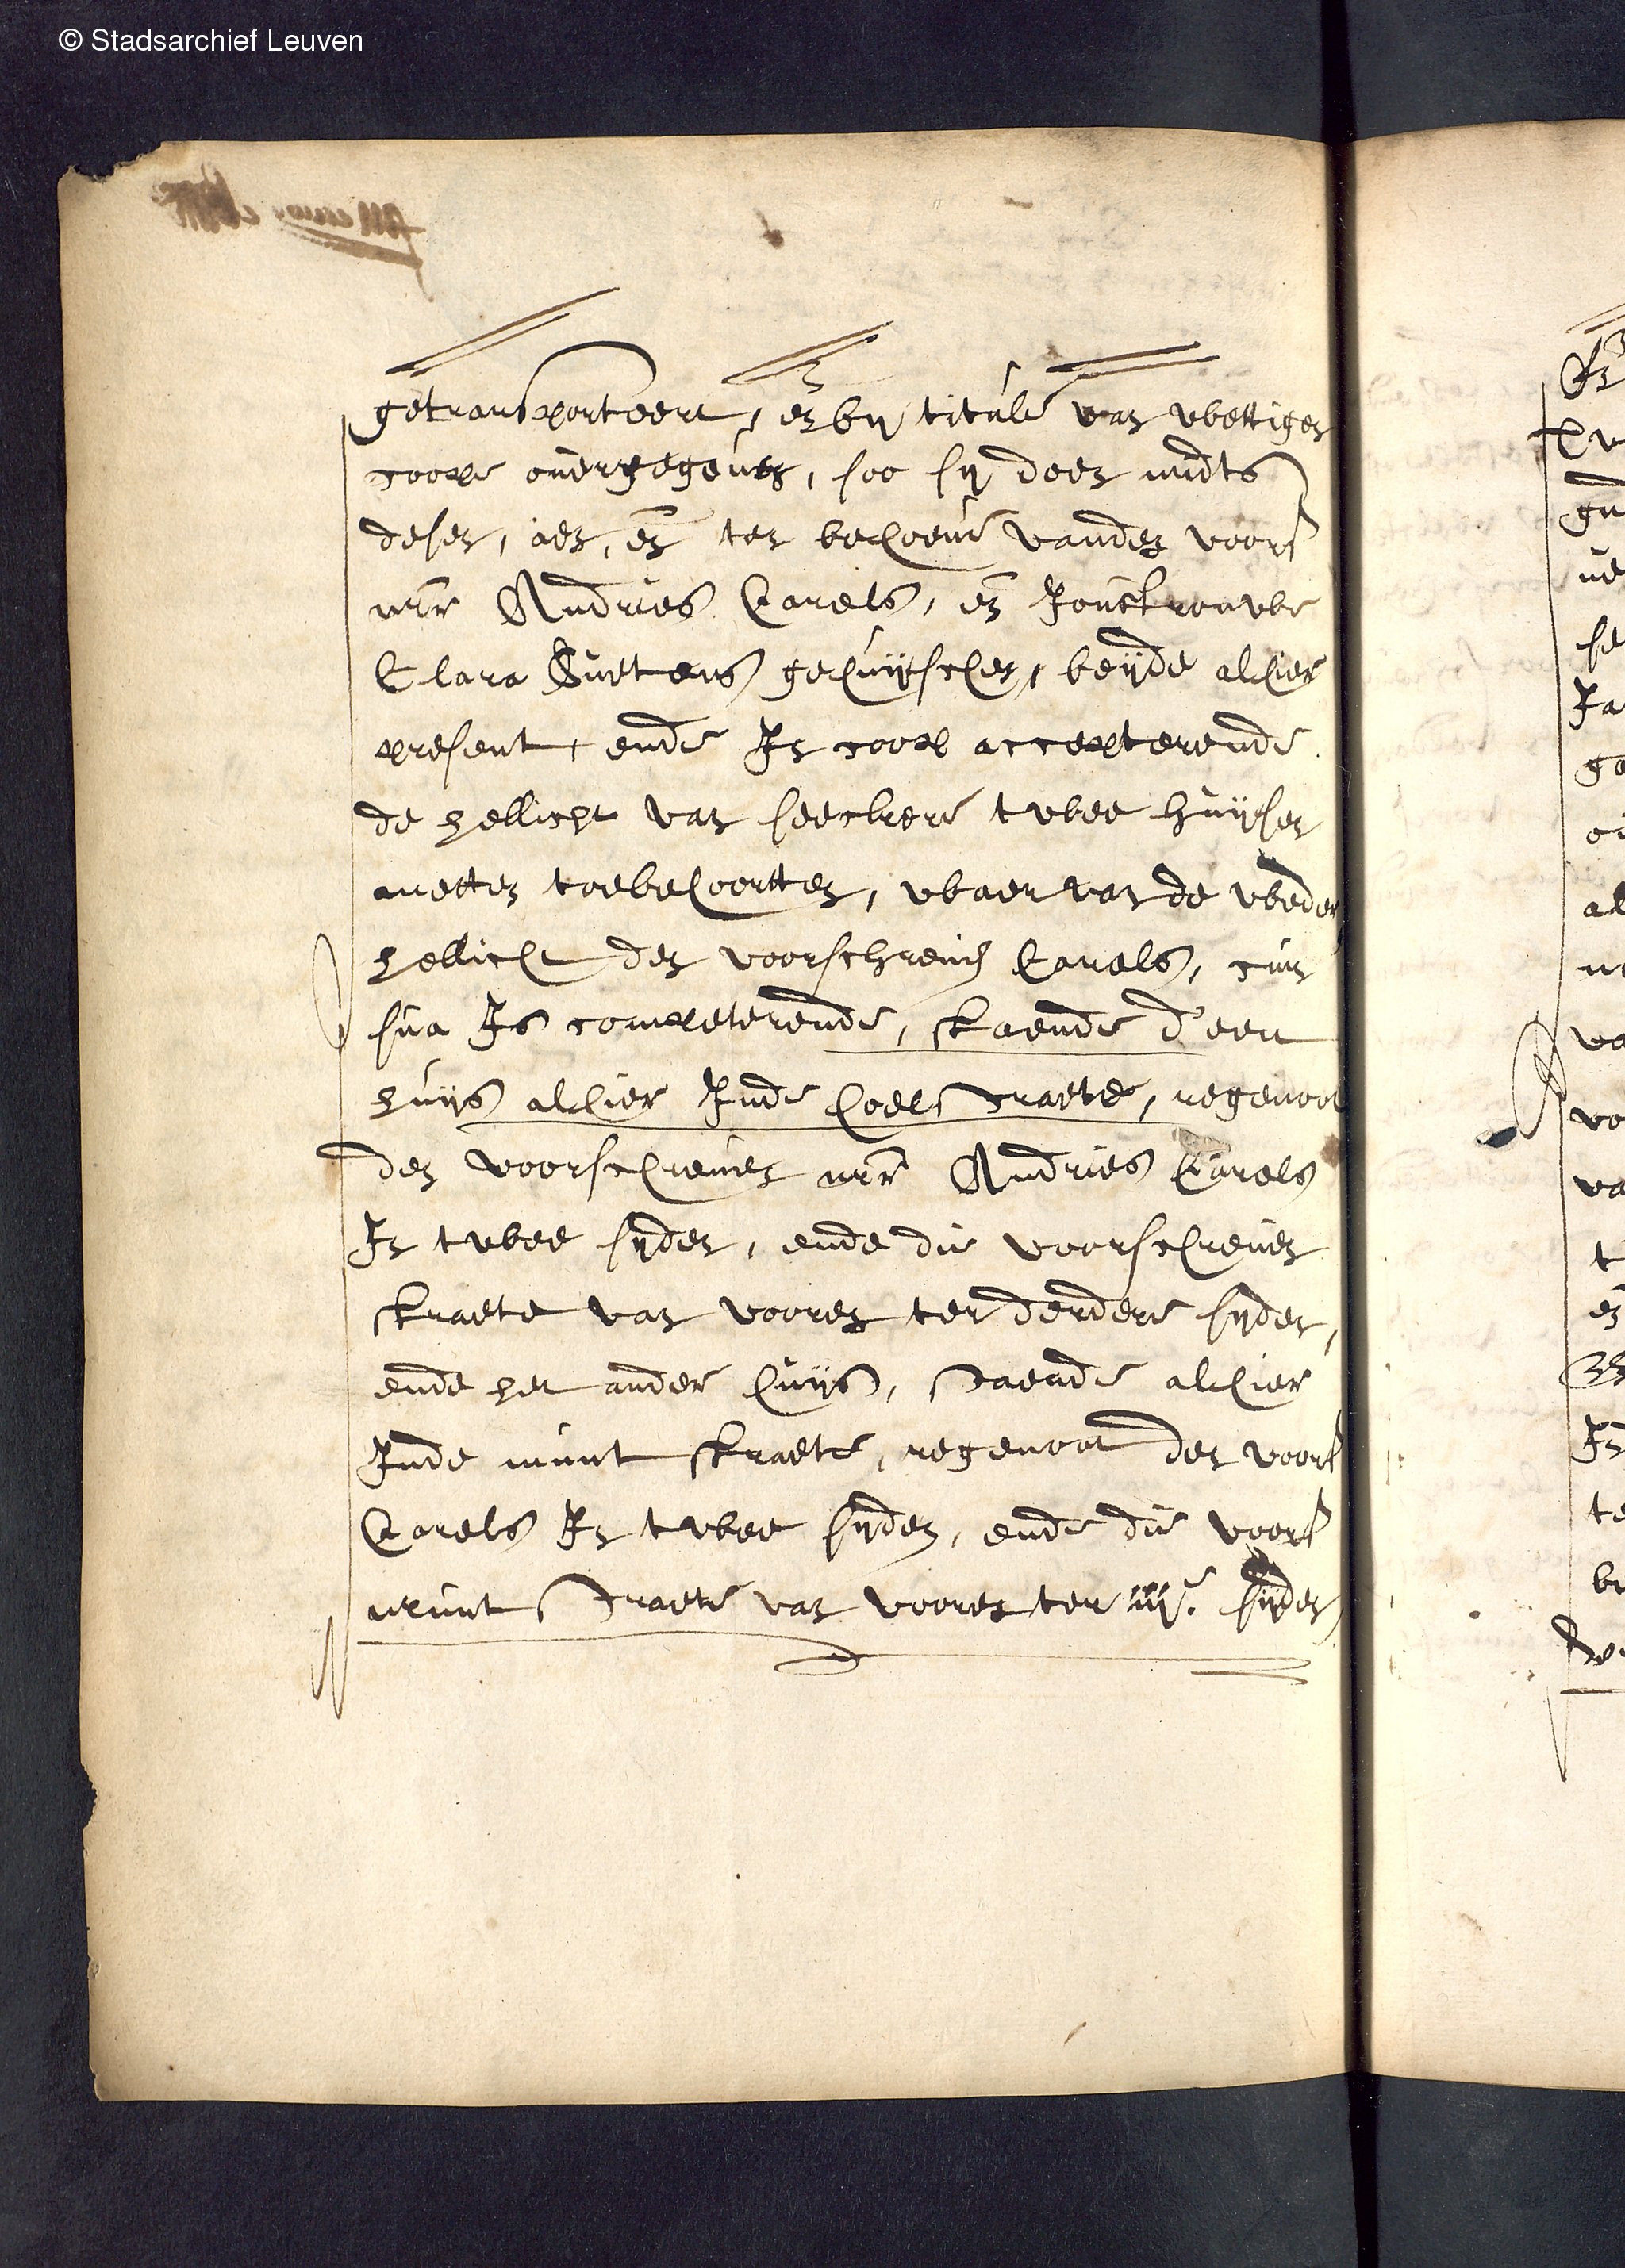 © Stadsarchief Leuven
getransporteert, en̄ by titule van wettigen
coope overgegeven, soo sy doen midts
desen, aen, en̄ ten behoeve vanden voors
mr Andries Carels, en̄ Jouffrouwe
Clara gehuysschen, beyde alhier
present, ende In coop accepterende
de hellicht van seeckere twee huysen
metten toebehoortten, waer van de weder
hellicht den voorschreven Carels, cum
sua Is competerende, staende d'een
huys alhier Inde straete, regenoot
den voorschreven mr Andries Carels
In twee syden, ende die voorschreven
straete van vooren ter derdere syden,
ende het ander huys, staende alhier
Inde munt straete, regenoot den voors
Carels In twee syden, ende die voors
munt straete van vooren ter iije. syden